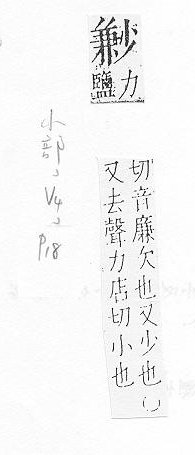 力
鹽
切音廉欠也又少也
又去聲力店切小也
小部、V4、P18